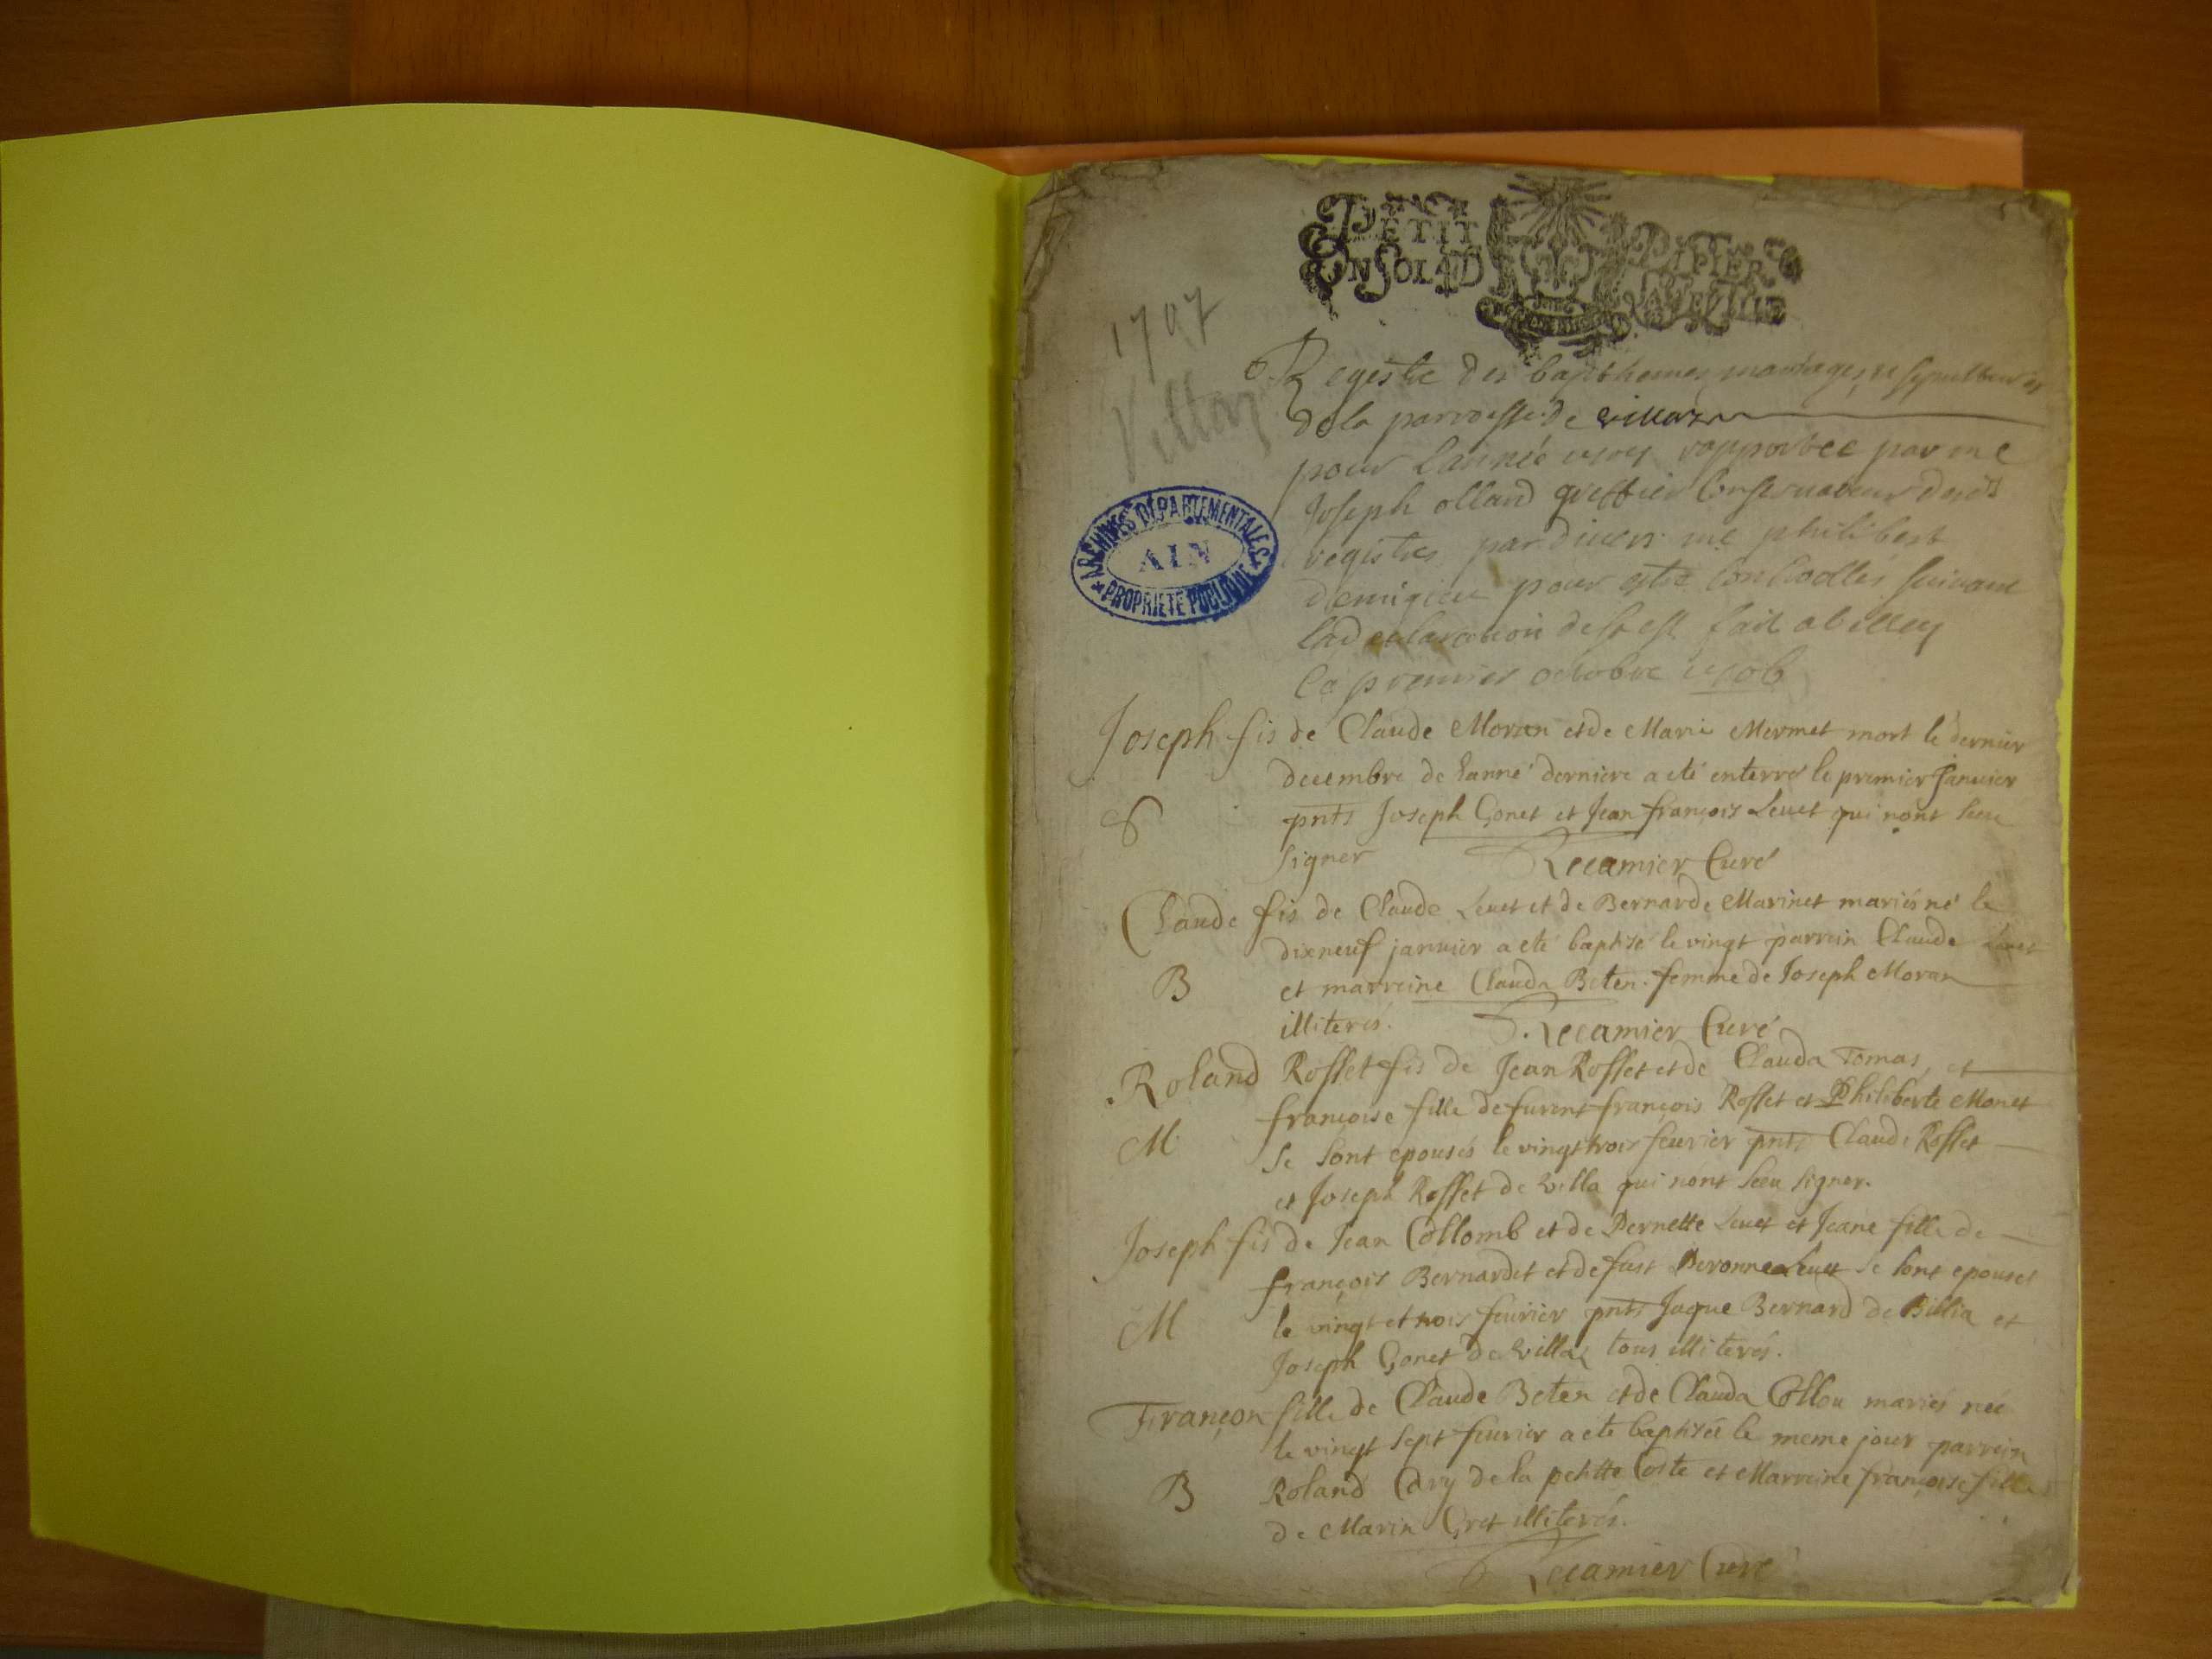 PETIT PAPIER
EN SOL LD
1707
Registre des bapthemes mariages et sepultures
de la parroesse de
pour Lannée rapportee par me
Joseph olland greffier Conservateur desds
registres par divers me philibert
pour estre Controlles suivant
Lad declaration fait a belley
Le premier octobre 1706
ARCHIVES DÉPARTEMENTALES
AIN
PROPRIÉTÉ PUBLIQUE
Joseph fis de Claude Moran et de Marie Mermet mort le dernier
decembre de lanné derniere a eté enterré le premier Janvier
S pnts Joseph Gonet et Jean françois Levet qui nont sceu
signer Recamier Curé
Claude fis de Claude Levet et de Bernarde Marinet mariés né le
dixneuf janvier a eté baptisé le vingt parrein Claude Levet
B et marreine Clauda Beten femme de Joseph Moran
illiterés. Recamier Curé
Roland Rosset fis de Jean Rosset et de Clauda Tomas, et
françoise fille de furent françois Rosset et Philiberte Monet
M se sont epousés le vingt trois fevrier pnts Claude Rosset
et Joseph Rosset de villa qui nont sceu signer.
Joseph fis de Jean Collomb et de Pernette Levet et Jeane fille de
françois Bernardet et de fust Peronne Levet se sont epouset
M le vingt et trois fevrier pnts Jaque Bernard de Billia et
Joseph Gonet de villaz tous illiterés.
Françon fille de Claude Beten et de Clauda Collou mariés nee
le vingt sept fevrier a eté baptisée le meme jour parrein
B Roland Cary de la petitte Coste et Marreine françoise fille
de Marin Gret illiterés.
Recamier Curé